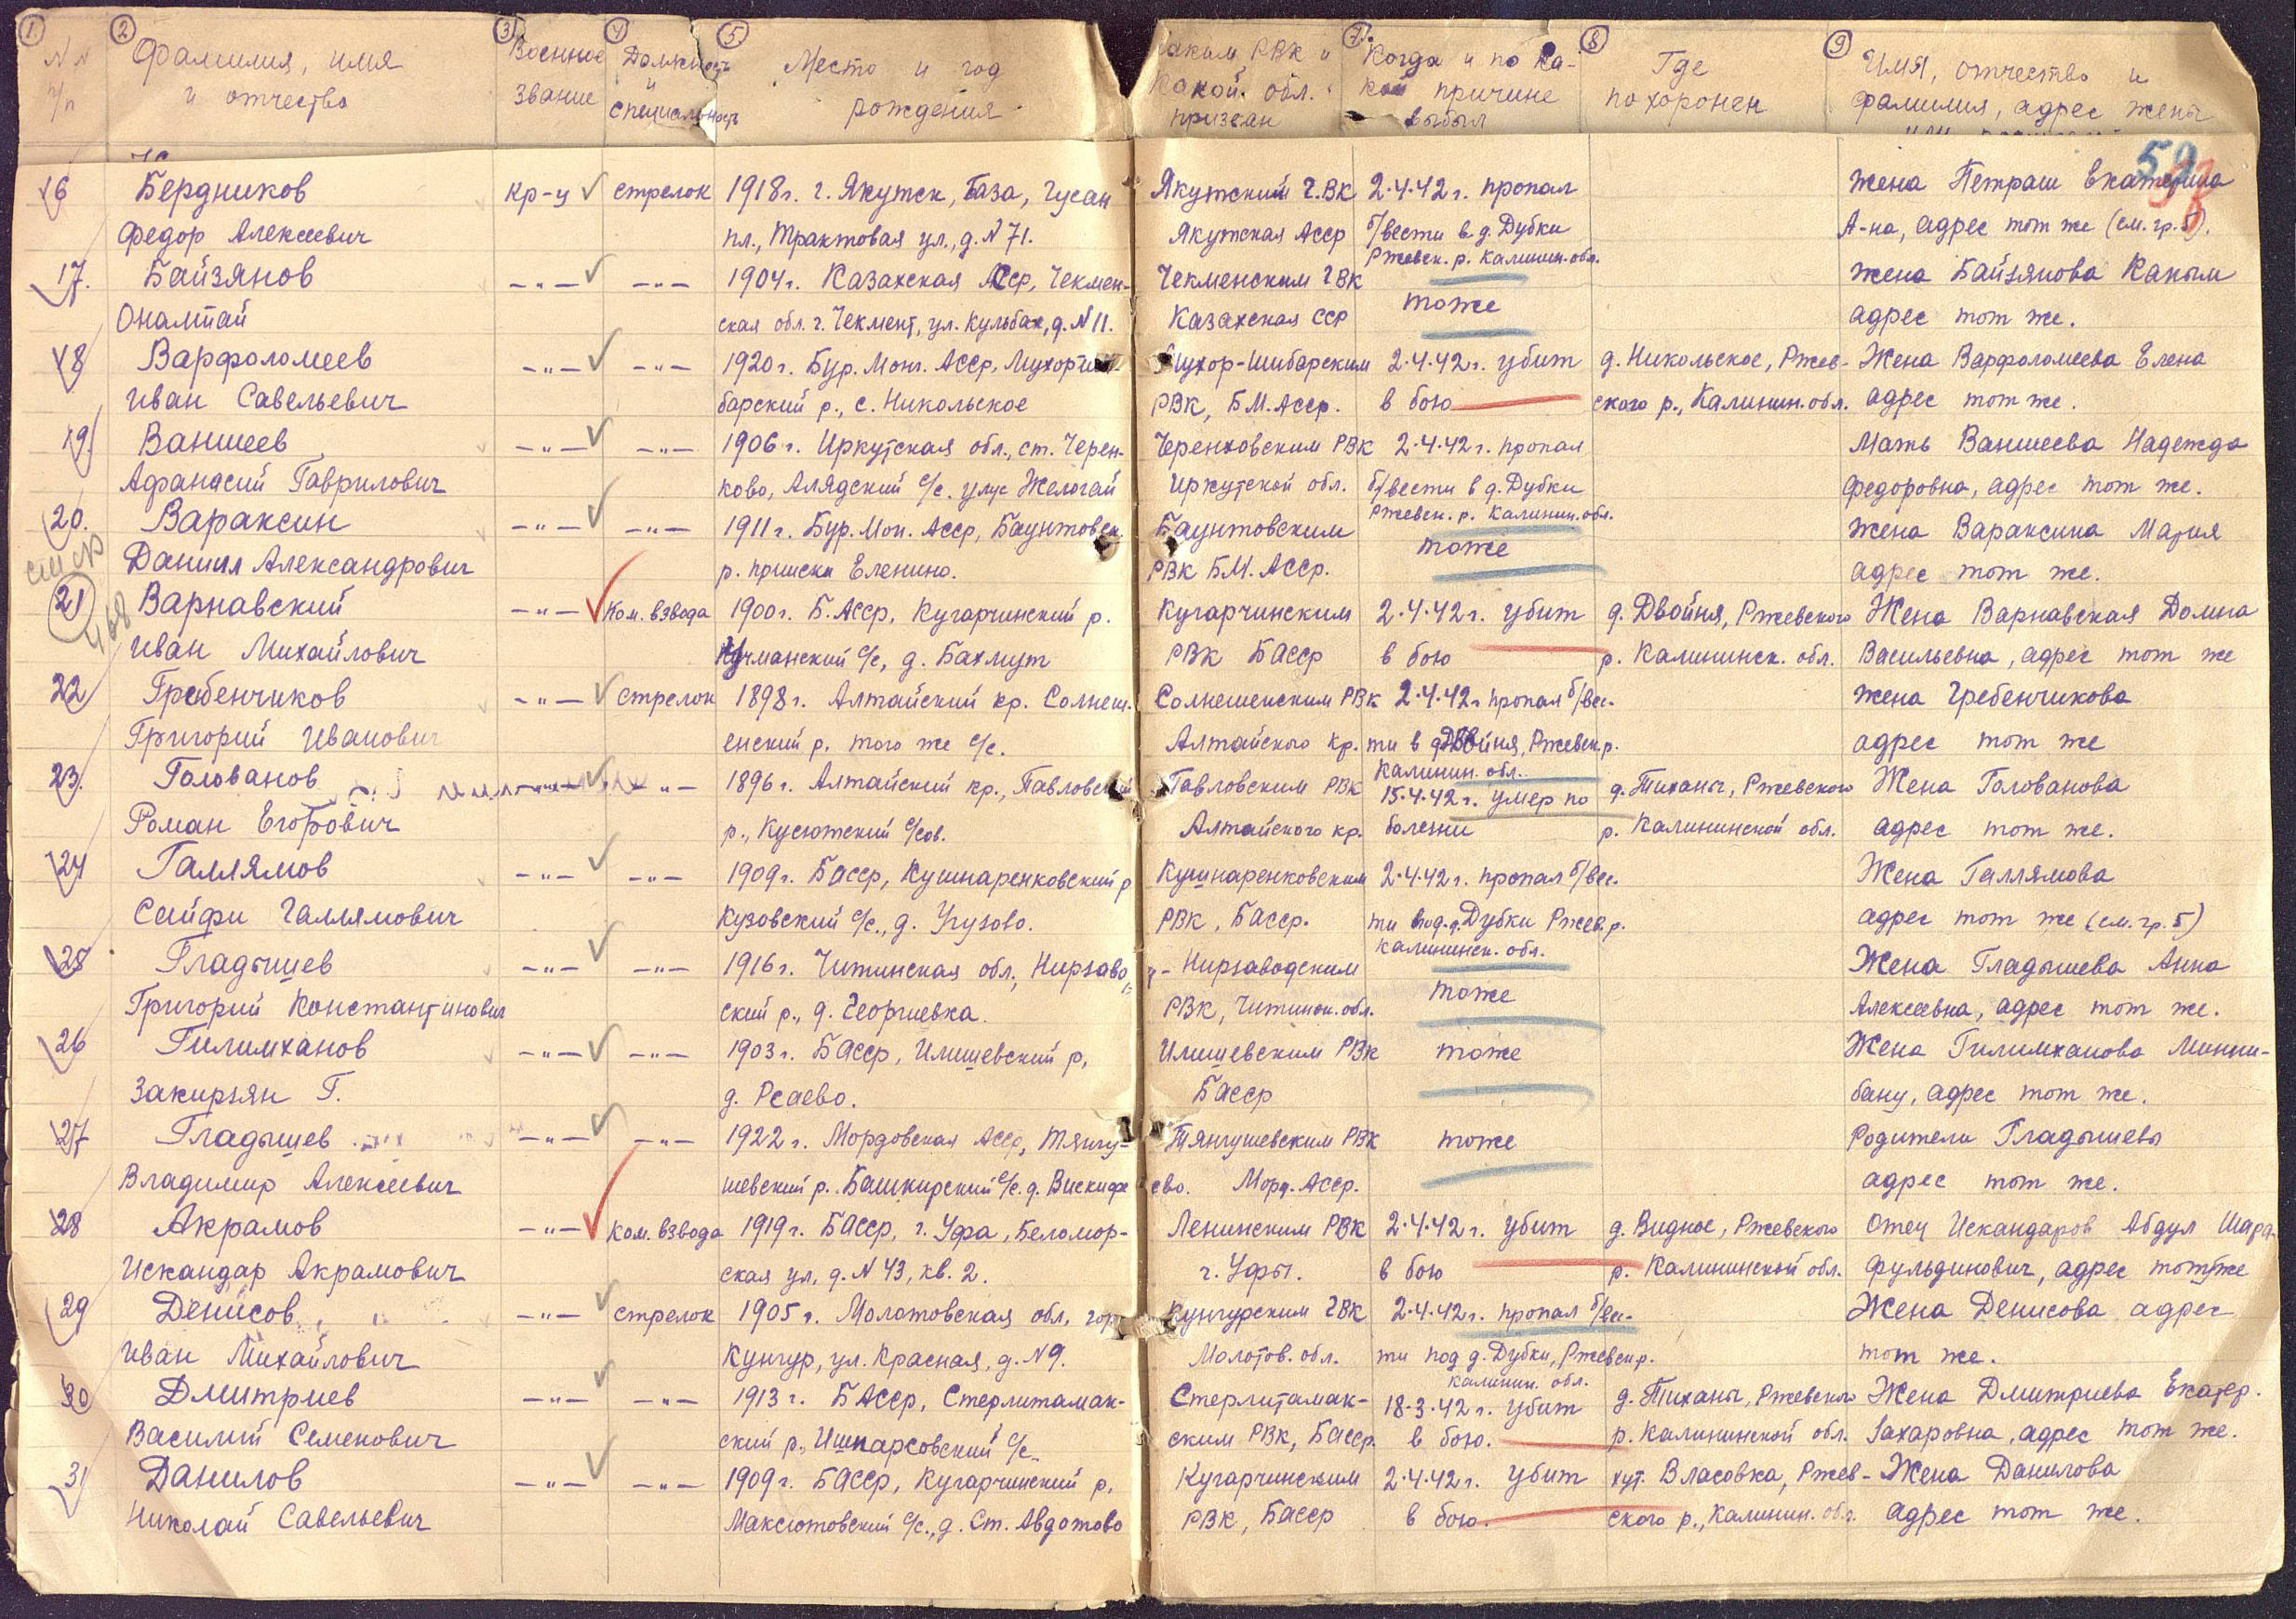 1 2 3 4 5 7. 8 9
NN Фамилия, имя Военное Должность Место и год каким РВК и Когда и по ка- Где Имя, отчество и
п/п и отчество звание и специальность рождения какой обл. призван кой причине выбыл похоронен фамилия, адрес жены
59
16 Бердников кр-ц стрелок 1918г. г. Якутск, База, Чусан Якутский Г.ВК 2.4.42г. пропал жена Петраш Екатерина
Федор Алексеевич пл., Трактовая ул., д. N 71. Якутская Асср б/вести в д. Дубки А-на, адрес тот же (см. гр. 5).
Ржевск. р. Калинин. обл.
17. Байзянов -"- -"- 1904г. Казахская Сср, Чекмен- Чекменским ГВК жена Байзянова Каным
Оналтай ская обл. г. Чекмент, ул. Кульбах, д. N 11. Казахская сср тоже адрес тот же.
18 Варфоломеев -"- -"- 1920г. Бур. Монг. Асср, Мухорши Мухор-Шибарским 2.4.42г. убит д. Никольское, Ржев- Жена Варфоломеева Елена
Иван Савельевич барский р., с. Никольское РВК, Б.М.Асср. в бою ского р., Калинин. обл. адрес тот же.
19. Ваншеев -"- -"- 1906г. Иркутская обл., ст. Черен- Черенховским РВК 2.4.42г. пропал Мать Ваншеева Надежда
Афанасий Гаврилович ково, Алядский с/с. улус Желогай Иркутской обл. б/вести в д. Дубки Федоровна, адрес тот же.
Ржевск. р. Калинин. обл.
20. Вараксин -"- -"- 1911г. Бур. Мон. Асср, Баунтовск. Баунтовским тоже жена Вараксина Мария
Даниил Александрович р. прииски Еленино. РВК БМ. Асср. адрес тот же.
21 Варнавский -"- Ком. взвода 1900г. Б. Асср, Кугарчинский р. Кугарчинским 2.4.42г. убит д. Двойня, Ржевского Жена Варнавская Домна
468
Иван Михайлович с/с, д. Бахмут РВК БАсср в бою р. Калининск. обл. Васильевна, адрес тот же
22 Гребенчиков -"- стрелок 1898г. Алтайский кр. Солнеш- Солнешенским РВК 2.4.42г пропал б/вес- жена Гребенчикова
Григорий Иванович енский р. того же с/с. Алтайского кр. ти в д. Двойня, Ржевск р. адрес тот же
Калинин. обл.
23. Голованов -"- -"- 1896г. Алтайский кр., Павловский Павловским РВК 15.4.42г. умер по д. Тиханы, Ржевского Жена Голованова
Роман Егорович р., Кусютский с/сов. Алтайского кр. болезни р. Калининской обл. адрес тот же.
24 Галлямов -"- -"- 1909г. БАсср, Кушнаренковский р Кушнаренковским 2.4.42г. пропал б/вес- Жена Галлямова
Сайфи Галлямович Кузовский с/с., д. Угузово. РВК, БАсср. ти под д. Дубки Ржев. р. адрес тот же (см. гр. 5)
Калининск. обл.
25 Гладышев -"- -"- 1916г. Читинская обл., Нирзаво Нирзаводским Жена Гладышева Анна
Григорий Константинович ский р., д. Георгиевка. РВК, Читинск. обл. тоже Алексеевна, адрес тот же.
26 Гилимханов -"- -"- 1903г. БАсср, Илишевский р, Илишевским РВК тоже Жена Гилимханова Минни-
Закирзян Г. д. Рсаево. БАсср бану, адрес тот же.
27 Гладышев -"- -"- 1922г. Мордовская Асср, Тянгу- Тянгушевским РВК тоже Родители Гладышевы
Владимир Алексеевич шевский р. Башкирский с/с. д. Вискифе ево. Морд. Асср. адрес тот же.
28 Акрамов -"- Ком. взвода 1919г. БАсср, г. Уфа, Беломор- Ленинским РВК 2.4.42г. убит д. Видное, Ржевского Отец Искандаров Абдул Шара
Искандар Акрамович ская ул, д. N 43, кв. 2. г. Уфы. в бою р. Калининской обл. фульдинович, адрес тот же
29 Денисов -"- стрелок 1905г. Молотовская обл, гор Кунгурским ГВК 2.4.42г. пропал б/вес- Жена Денисова адрес
Иван Михайлович Кунгур, ул. Красная, д. N 9. Молотов. обл. ти под д. Дубки, Ржевск р. тот же.
Калинин. обл.
30 Дмитриев -"- -"- 1913г. БАсср, Стерлитамак- Стерлитамак- 18.3.42г. убит д. Тиханы, Ржевского Жена Дмитриева Екатер.
Василий Семенович ский р., Ишпарсовский с/с. ским РВК, БАсср. в бою. р. Калининской обл. Захаровна, адрес тот же.
31 Данилов -"- -"- 1909г. БАсср, Кугарчинский р, Кугарчинским 2.4.42г. убит хут. Власовка, Ржев- Жена Данилова
Николай Савельевич Максютовский с/с., д. Ст. Авдотово РВК, БАсср в бою. ского р., Калинин. обл. адрес тот же.